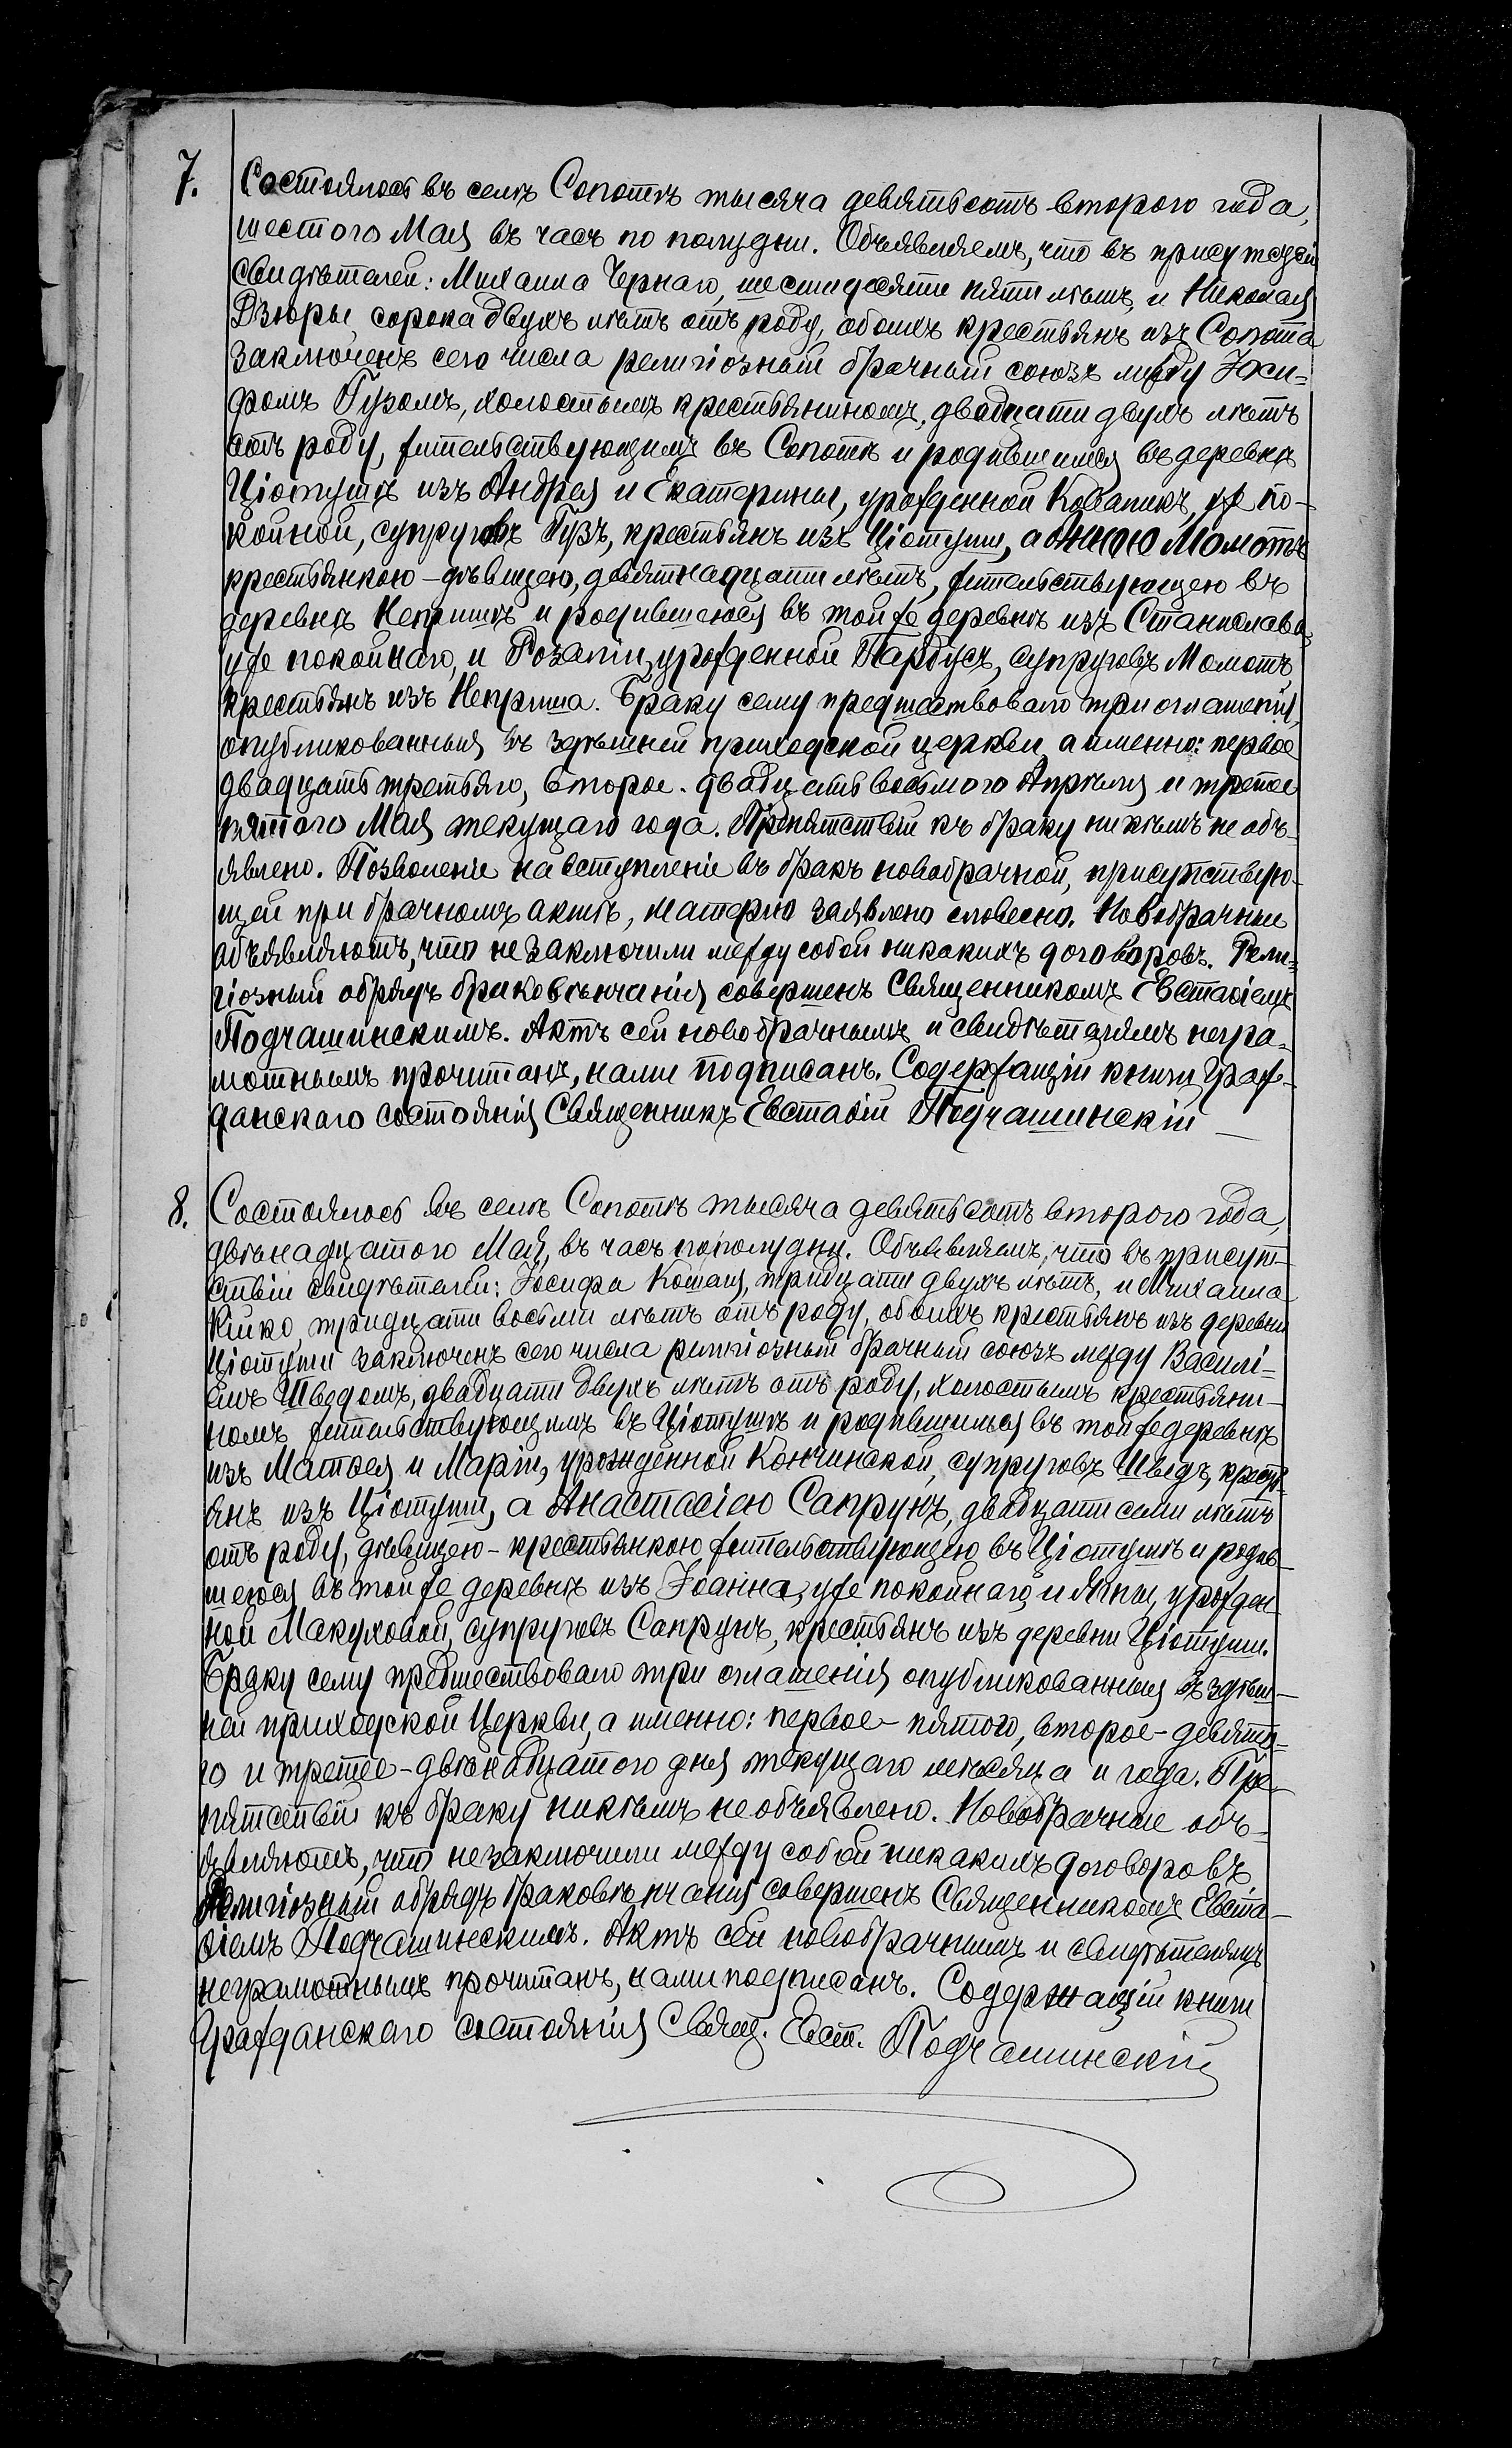 7. Состоялось въ селѣ Сопотѣ тысяча девятьсотъ второго года,
шестого Мая въ часъ по полудни. Объявляемъ, что въ присутствіи
свидѣтелей: Михаила Чернаго, шестидесяти пяти лѣтъ, и Николая
Дзюры, сорока двухъ лѣтъ отъ роду, обоихъ крестьянъ изъ Сопота
заключенъ сего числа религіозный брачный союзъ между Іоси-
фомъ Гузомъ, холостымъ крестьяниномъ, двадцати двухъ лѣтъ
отъ роду, жительствующимъ въ Сопотѣ и родившимся въ деревнѣ
Ціотушѣ изъ Андрея и Екатерины, урожденной Коваликъ, уже по-
койной, супруговъ Гузъ, крестьянъ изъ Ціотуши, а Анною Момотъ
крестьянкою - дѣвицею, девятнадцати лѣтъ, жительствующею въ
деревнѣ Непришѣ и родившеюся въ той же деревнѣ изъ Станислава,
уже покойнаго, и Розаліи, урожденной Пардусъ, супруговъ Момотъ,
крестьянъ изъ Неприша. Браку сему предшествовало три оглашенія,
опубликованныя въ здѣшней приходской церкви, а именно: первое
двадцать третьяго, второе - двадцать восьмого Апрѣля и третее
пятого Мая текущаго года. Препятствій къ браку никѣмъ не объ-
явлено. Позволеніе на вступленіе въ бракъ новобрачной, присутствую-
щей при брачномъ актѣ, матерью заявлено словесно. Новобрачные
объявляютъ, что не заключили между собой никакихъ договоровъ. Рели-
гіозный обрядъ браковѣнчанія совершенъ Священникомъ Евстаѳіемъ
Подчашинскимъ. Актъ сей новобрачнымъ и свидѣтелямъ негра-
мотнымъ прочитанъ, нами подписанъ. Содержащій книги Граж-
данскаго состоянія Священникъ Евстаѳій Подчашинскій
8. Состоялось въ селѣ Сопотѣ тысяча девятьсотъ второго года,
двѣнадцатого Мая, въ часъ по полудни. Объявляемъ, что въ присут-
ствіи свидѣтелей: Іосифа Кошая, тридцати двухъ лѣтъ, и Михаила
Кийко, тридцати восьми лѣтъ отъ роду, обоихъ крестьянъ изъ деревни
Ціотуши заключенъ сего числа религіозный брачный союзъ между Василі-
емъ Шведомъ, двадцати двухъ лѣтъ отъ роду, холостымъ крестьяни-
номъ жительствующимъ въ Ціотушѣ и родившимся въ той же деревнѣ
изъ Матѳея и Маріи, урожденной Кончинской, супруговъ Шведъ, кресть-
янъ изъ Ціотуши, а Анастасіею Сапрунъ, двадцати семи лѣтъ
отъ роду, дѣвицею - крестьянкою жительствующею въ Ціотушѣ и родив-
шеюся въ той же деревнѣ изъ Іоанна, уже покойнаго, и Анны, урожден-
ной Макуховой, супруговъ Сапрунъ, крестьянъ изъ деревни Ціотуши.
Браку сему предшествовало три оглашенія опубликованныя въ здѣш-
ней приходской Церкви, а именно: первое - пятого, второе - девято-
го и третее - двѣнадцатого дня текущаго мѣсяца и года. Пре-
пятствій къ браку никѣмъ не объявлено. Новобрачные объ-
являютъ, что не заключили между собой никакихъ договоровъ.
Религіозный обрядъ браковѣнчанія совершенъ Священникомъ Евста-
ѳіемъ Подчашинскимъ. Актъ сей новобрачнымъ и свидѣтелямъ
неграмотнымъ прочитанъ, нами подписанъ. Содержащій книги
Гражданскаго состоянія Свящ. Евст. Подчашинскій